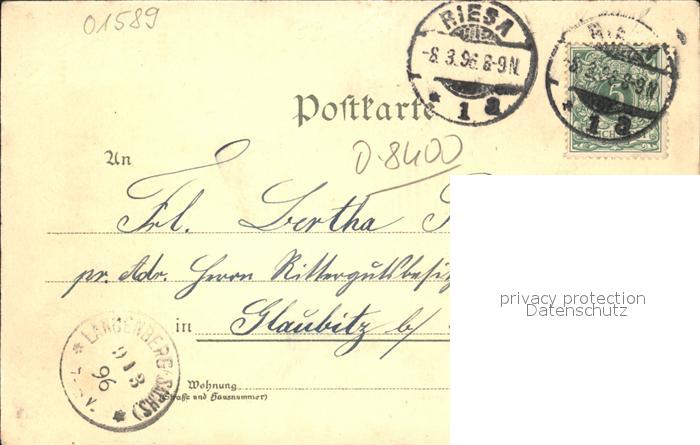 01589
RIESA
-8.3.96.8-9N.
* 1 a
Postkarte
D-8400
An
Frl. Bertha
pr. Adr. Herrn Rittergutsbesitz
in Glaubitz b/
privacy protection
Datenschutz
* LANGENBERG (SACHS) *
9 / 3
96
Wohnung
(Straße und Hausnummer)